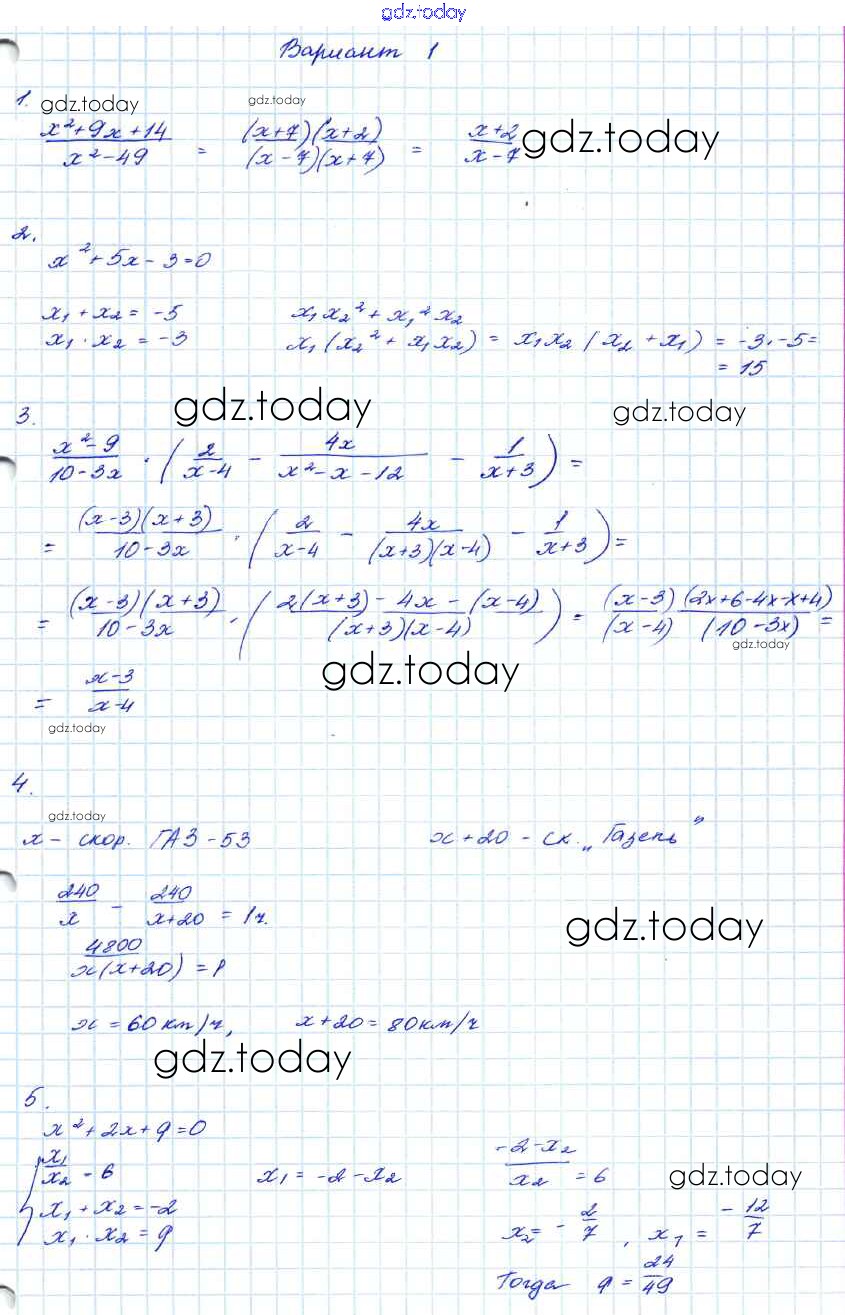 gdz.today
Вариант 1
1. gdz.today gdz.today
(x²+9x+14)/(x²-49) = ((x+7)(x+2))/((x-7)(x+7)) = (x+2)/(x-7) gdz.today
2.
x²+5x-3=0
x₁+x₂=-5 x₁x₂²+x₁²x₂
x₁·x₂=-3 x₁(x₂²+x₁x₂) = x₁x₂(x₂+x₁) = -3·-5=
= 15
3. gdz.today gdz.today
(x²-9)/(10-3x) · (2/(x-4) - 4x/(x²-x-12) - 1/(x+3)) =
= ((x-3)(x+3))/(10-3x) · (2/(x-4) - 4x/((x+3)(x-4)) - 1/(x+3)) =
= ((x-3)(x+3))/(10-3x) · ((2(x+3)-4x-(x-4))/((x+3)(x-4))) = ((x-3)(2x+6-4x-x+4))/((x-4)(10-3x)) =
gdz.today gdz.today
= (x-3)/(x-4)
gdz.today
4.
gdz.today
x - скор. ГАЗ-53 x+20 - ск. „Газель"
240/x - 240/(x+20) = 1ч.
gdz.today
4800/(x(x+20)) = 1
x = 60км/ч, x+20 = 80км/ч
gdz.today
5.
x²+2x+q=0
x₁/x₂ = 6 x₁ = -2-x₂ (-2-x₂)/x₂ = 6 gdz.today
x₁+x₂=-2
x₁·x₂=q x₂= -2/7, x₁ = -12/7
Тогда q = 24/49